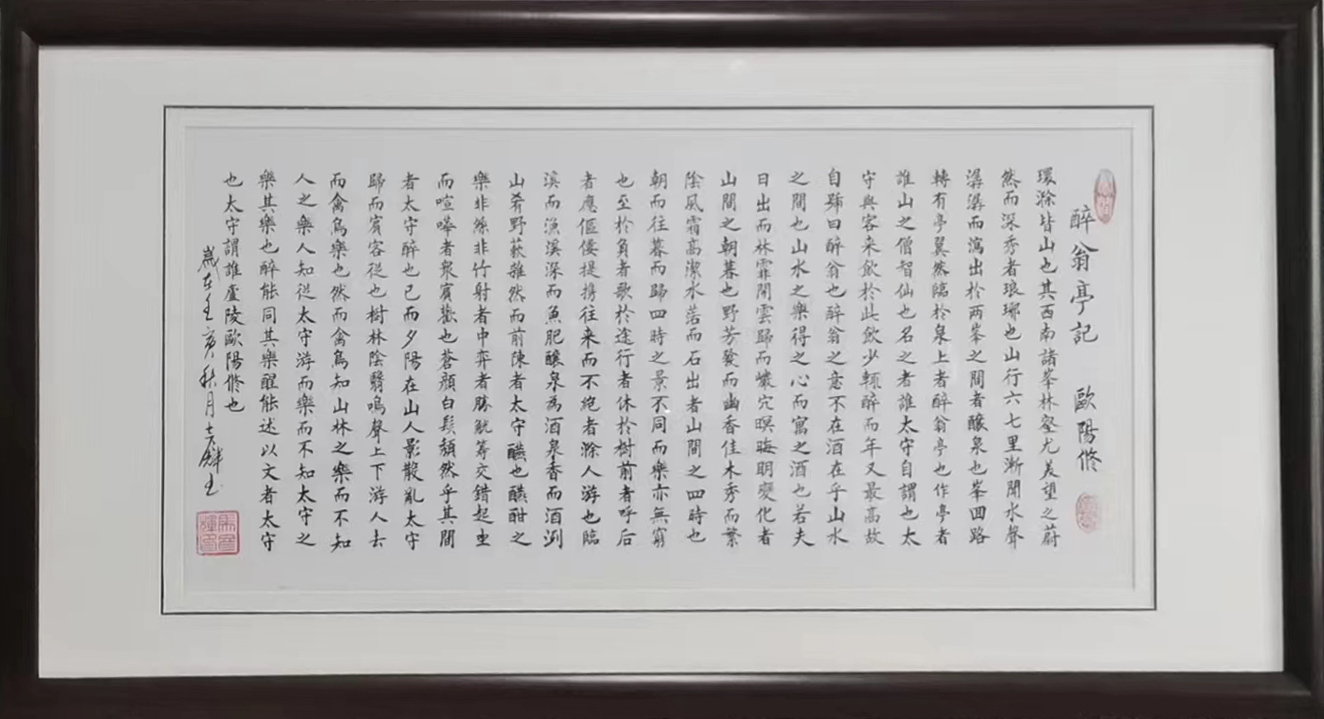 醉翁亭記 歐陽脩
環滁皆山也其西南諸峯林壑尤美望之蔚
然而深秀者琅琊也山行六七里漸聞水聲
潺潺而瀉出於两峯之間者釀泉也峯回路
轉有亭翼然臨於泉上者醉翁亭也作亭者
誰山之僧智仙也名之者誰太守自謂也太
守與客来飲於此飲少輒醉而年又最高故
自號曰醉翁也醉翁之意不在酒在乎山水
之間也山水之樂得之心而寓之酒也若夫
日出而林霏開雲歸而巖穴暝晦明變化者
山間之朝暮也野芳發而幽香佳木秀而繁
陰風霜高潔水落而石出者山間之四時也
朝而往暮而歸四時之景不同而樂亦無窮
也至於負者歌於途行者休於樹前者呼后
者應傴僂提携往来而不絶者滁人游也臨
溪而漁溪深而魚肥釀泉為酒泉香而酒洌
山肴野蔌雜然而前陳者太守醼也醼酣之
樂非絲非竹射者中弈者勝觥筹交錯起坐
而喧嘩者衆賓歡也蒼顔白髮頹然乎其間
者太守醉也已而夕陽在山人影散亂太守
歸而賓客從也樹林陰翳鳴聲上下游人去
而禽鳥樂也然而禽鳥知山林之樂而不知
人之樂人知從太守游而樂而不知太守之
樂其樂也醉能同其樂醒能述以文者太守
也太守謂誰廬陵歐陽脩也
歲在壬寅秋月